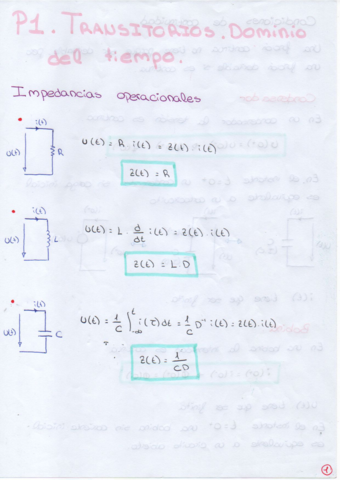 P1. TRANSITORIOS. Dominio
del tiempo.
Impedancias operacionales
i(t)
u(t) R
u(t) = R i(t) = z(t) i(t)
z(t) = R
i(t)
u(t) L
u(t) = L d/dt i(t) = z(t) i(t)
z(t) = L D
i(t)
u(t) C
u(t) = 1/C ∫_{-∞}^{t} i(τ) dτ = 1/C D⁻¹ i(t) = z(t) i(t)
z(t) = 1/CD
1